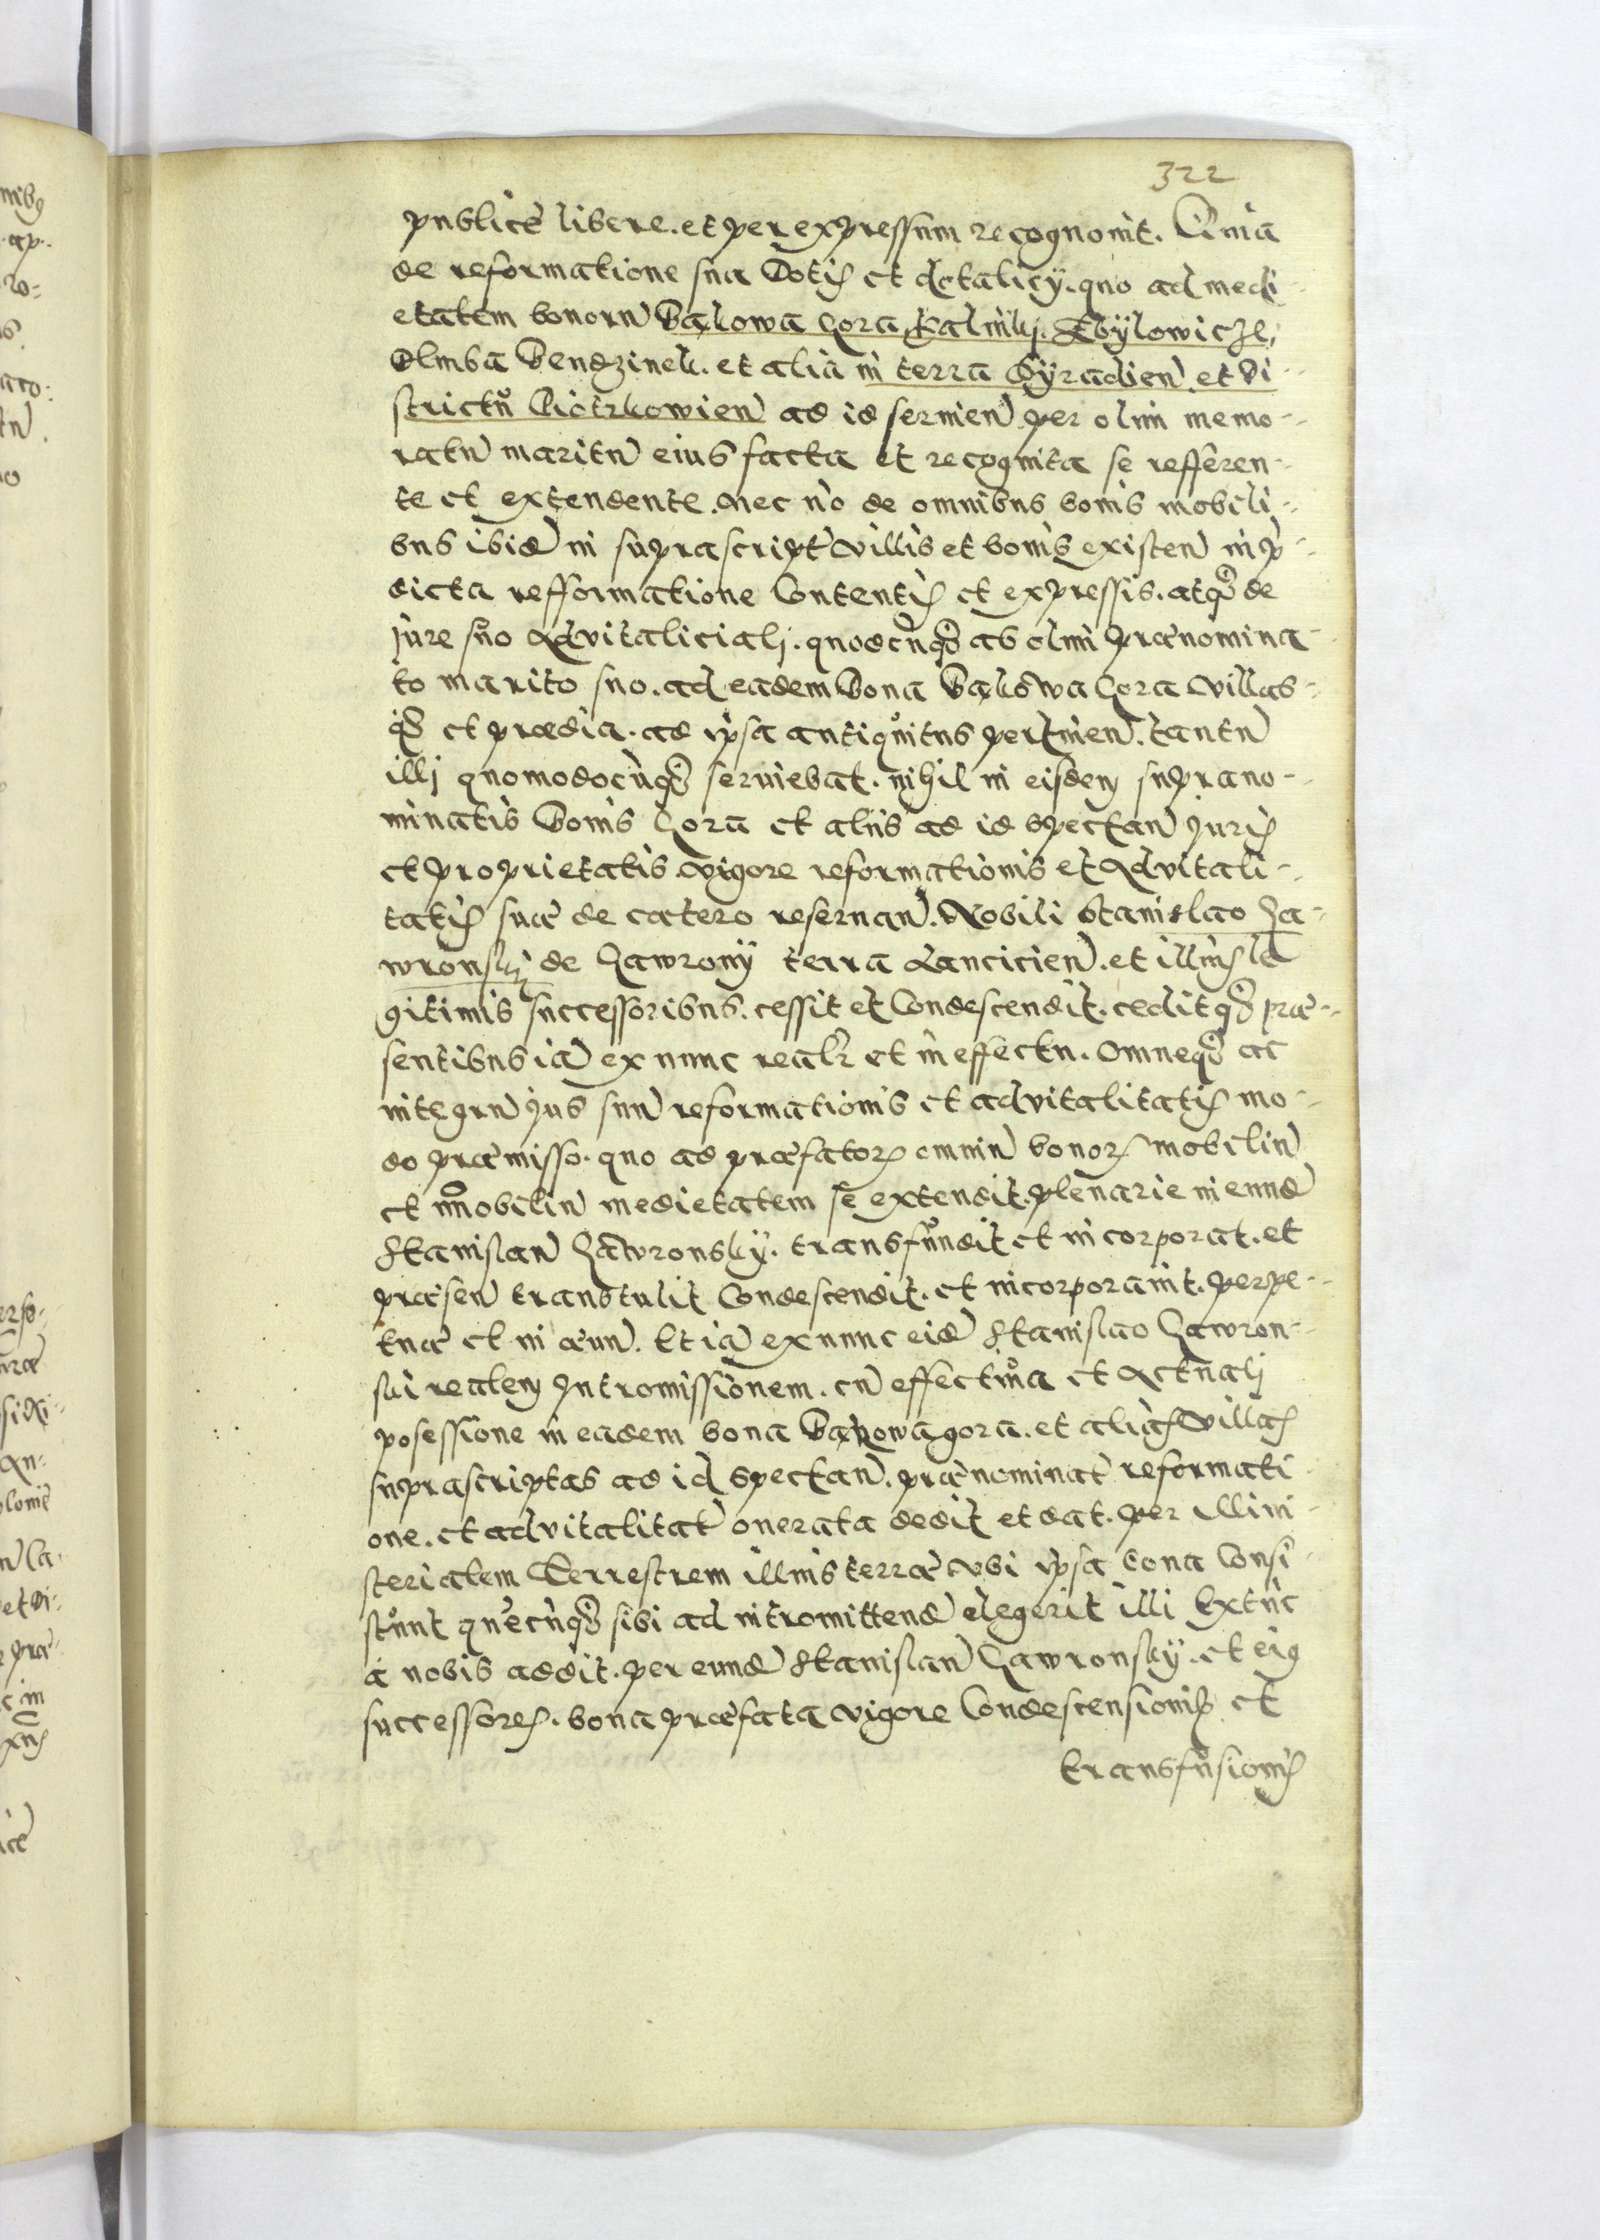 322
publice libere. et per expressum recognovit. Quia
de reformatione sua Dotis et dotalicy. quo ad medi-
etatem bonorũ Bąkowa Gora, Kalinky. Zbÿlowicze,
Dluba Bendzinek. et alia in terra Sÿradien̄ et di-
strictũ Piotrkowien̄ ad id servien̄ per olim memo-
ratũ maritũ eius facta et recognita se refferen-
te et extendente. nec nō de omnibus bonis mobili-
bus ibidē in suprascript̄ villis et bonis existen̄ in p̄-
dicta refformatione Contentis et expressis. atq̃ de
jure suo Advitalicialj. quodcũq̃ ab olim prænomina-
to marito suo. ad eadem bona Bąkowa Gora villas-
q̃ et prædia. ad ipsa antiquitus pertinen̄. tantũ
illj quomodocũq̃ serviebat. nihil in eisdem suprano-
minatis bonis Gora et aliis ad id spectan̄ juris
et proprietatis. vigore reformationis et Advitali-
tatis suæ de cætero reservan̄. Nobili Stanislao Ga-
wronskj de Gawrony terra Lancicien̄. et illius le
gitimis successoribus. cessit et Condescendit. ceditq̃ præ-
sentibus iā ex nunc realr̄ et in effectu. Omneq̃ ac
integrũ jus suũ reformationis et advitalitatis mo-
do præmisso. quo ad præfator̄ omniũ bonor̄ mobiliũ
et im̄obiliũ medietatem se extendit. plenarie in eundē
Stanislaũ Gawronskÿ. transfundit et incorporat. et
præsen̄ transtulit Condescendit. et incorporavit. perpe-
tuæ et in ævũ. Et iā ex nunc eidē Stanislao Gawron-
ski realem Intromissionem. cũ effectiva et Actualj
posessione in eadem bona Bąkowagora. et alias villas
suprascriptas ad id spectan̄. prænominat̄ reformati-
one. et advitalitat̄ onerata dedit et dat. per Mini-
sterialem Terrestrem illius terræ ubi ipsa bona Consi-
stunt quēcũq̃ sibi ad intromittendē elegerit illi Extũc
a nobis addit. per eundē Stanislaũ Gawronskÿ. et eius
successores. bona præfata vigore Condescensionis et
transfusionis